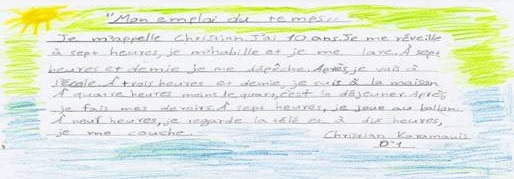 "Mon emploi du temps...
Je m'appelle Christian. J'ai 10 ans. Je me réveille
à sept heures, je m'habille et je me lave. À sept
heures et demie je me dépêche. Après, je vais à
l'école. À trois heures et demie, je suis à la maison
À quatre heures moins le quart, c'est le déjeuner. Après,
je fais mes devoirs. À sept heures, je joue au ballon.
À neuf heures, je regarde la télé et à dix heures,
je me couche.
Christian Karamanis
D'1